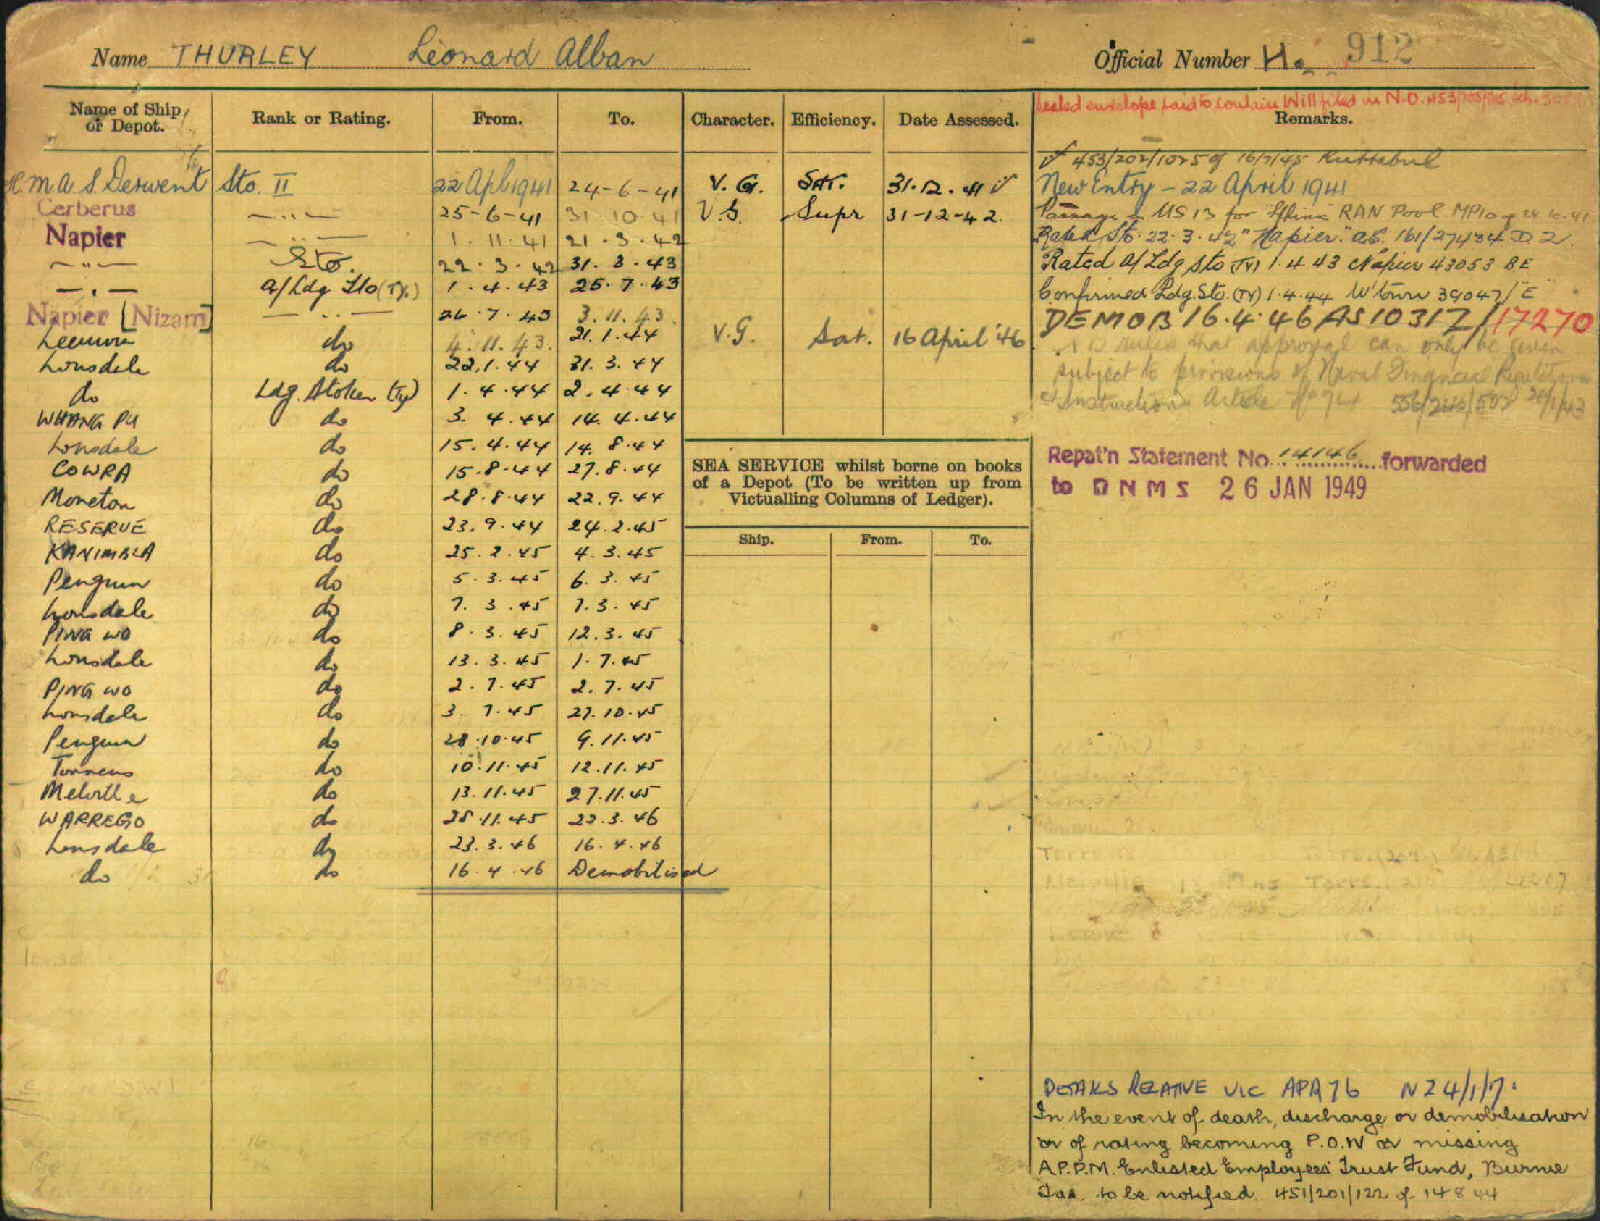 Name THURLEY Leonard Alban Official Number H. 912
Name of Ship or Depot. Rank or Rating. From. To. Character. Efficiency. Date Assessed. Remarks.
Sealed envelope said to contain Will filed in N.O. 453/
453/202/1025 of 16/7/45 Kuttabul
H.M.A.S Derwent Sto. II 22 Apl 1941 24-6-41 V.G. Sat. 31.12.41 New Entry - 22 April 1941
Cerberus -..- 25-6-41 31.10.41 V.G. Supr 31-12-42 Passage US 13 for RAN Pool
Napier -..- 1.11.41 21.3.42 Rated Sto. 22.3.42 "Napier" 161/27434 D2
-..- Sto. 22.3.42 31.3.43 Rated A/Ldg Sto (Ty) 1.4.43 Napier 43053 BE
-..- A/Ldg Sto (Ty.) 1.4.43 25.7.43 Confirmed Ldg Sto. (Ty) 1.4.44 W'town 39047/"E"
Napier [Nizam] -..- 26.7.43 3.11.43 DEMOB 16.4.46 AS10317/17270
Leeuwin do 4.11.43. 21.1.44 V.G. Sat. 16 April '46 rules that approval can only be given
Lonsdale do 22.1.44 31.3.44 subject to provisions of Naval Financial Regulations
do Ldg. Stoker (Ty) 1.4.44 2.4.44 & Instructions Article
WHANG PU do 3.4.44 14.4.44
Lonsdale do 15.4.44 14.8.44
COWRA do 15.8.44 27.8.44
Moreton do 28.8.44 22.9.44
RESERVE do 23.9.44 24.2.45
KANIMBLA do 25.2.45 4.3.45
Penguin do 5.3.45 6.3.45
Lonsdale do 7.3.45 7.3.45
PING WO do 8.3.45 12.3.45
Lonsdale do 13.3.45 1.7.45
PING WO do 2.7.45 2.7.45
Lonsdale do 3.7.45 27.10.45
Penguin do 28.10.45 9.11.45
Torrens do 10.11.45 12.11.45
Melville do 13.11.45 27.11.45
WARREGO do 28.11.45 22.3.46
Lonsdale do 23.3.46 16.4.46
do do 16.4.46 Demobilised
SEA SERVICE whilst borne on books
of a Depot (To be written up from
Victualling Columns of Ledger).
Ship. From. To.
Repat'n Statement No. 14146 forwarded
to DNMS 26 JAN 1949
DETAILS RELATIVE VIC APA 76 N24/1/7.
In the event of death, discharge or demobilisation
or of rating becoming P.O.W or missing
A.P.P.M. Enlisted Employees' Trust Fund, Burnie
Tas. to be notified. 451/201/122 of 14 8 44